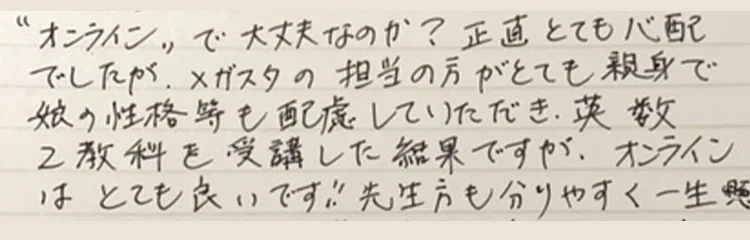 “オンライン„で大丈夫なのか？正直とても心配
でしたが、メガスタの担当の方がとても親身で
娘の性格等も配慮していただき、英数
2教科を受講した結果ですが、オンライン
はとても良いです!!先生方も分りやすく一生懸